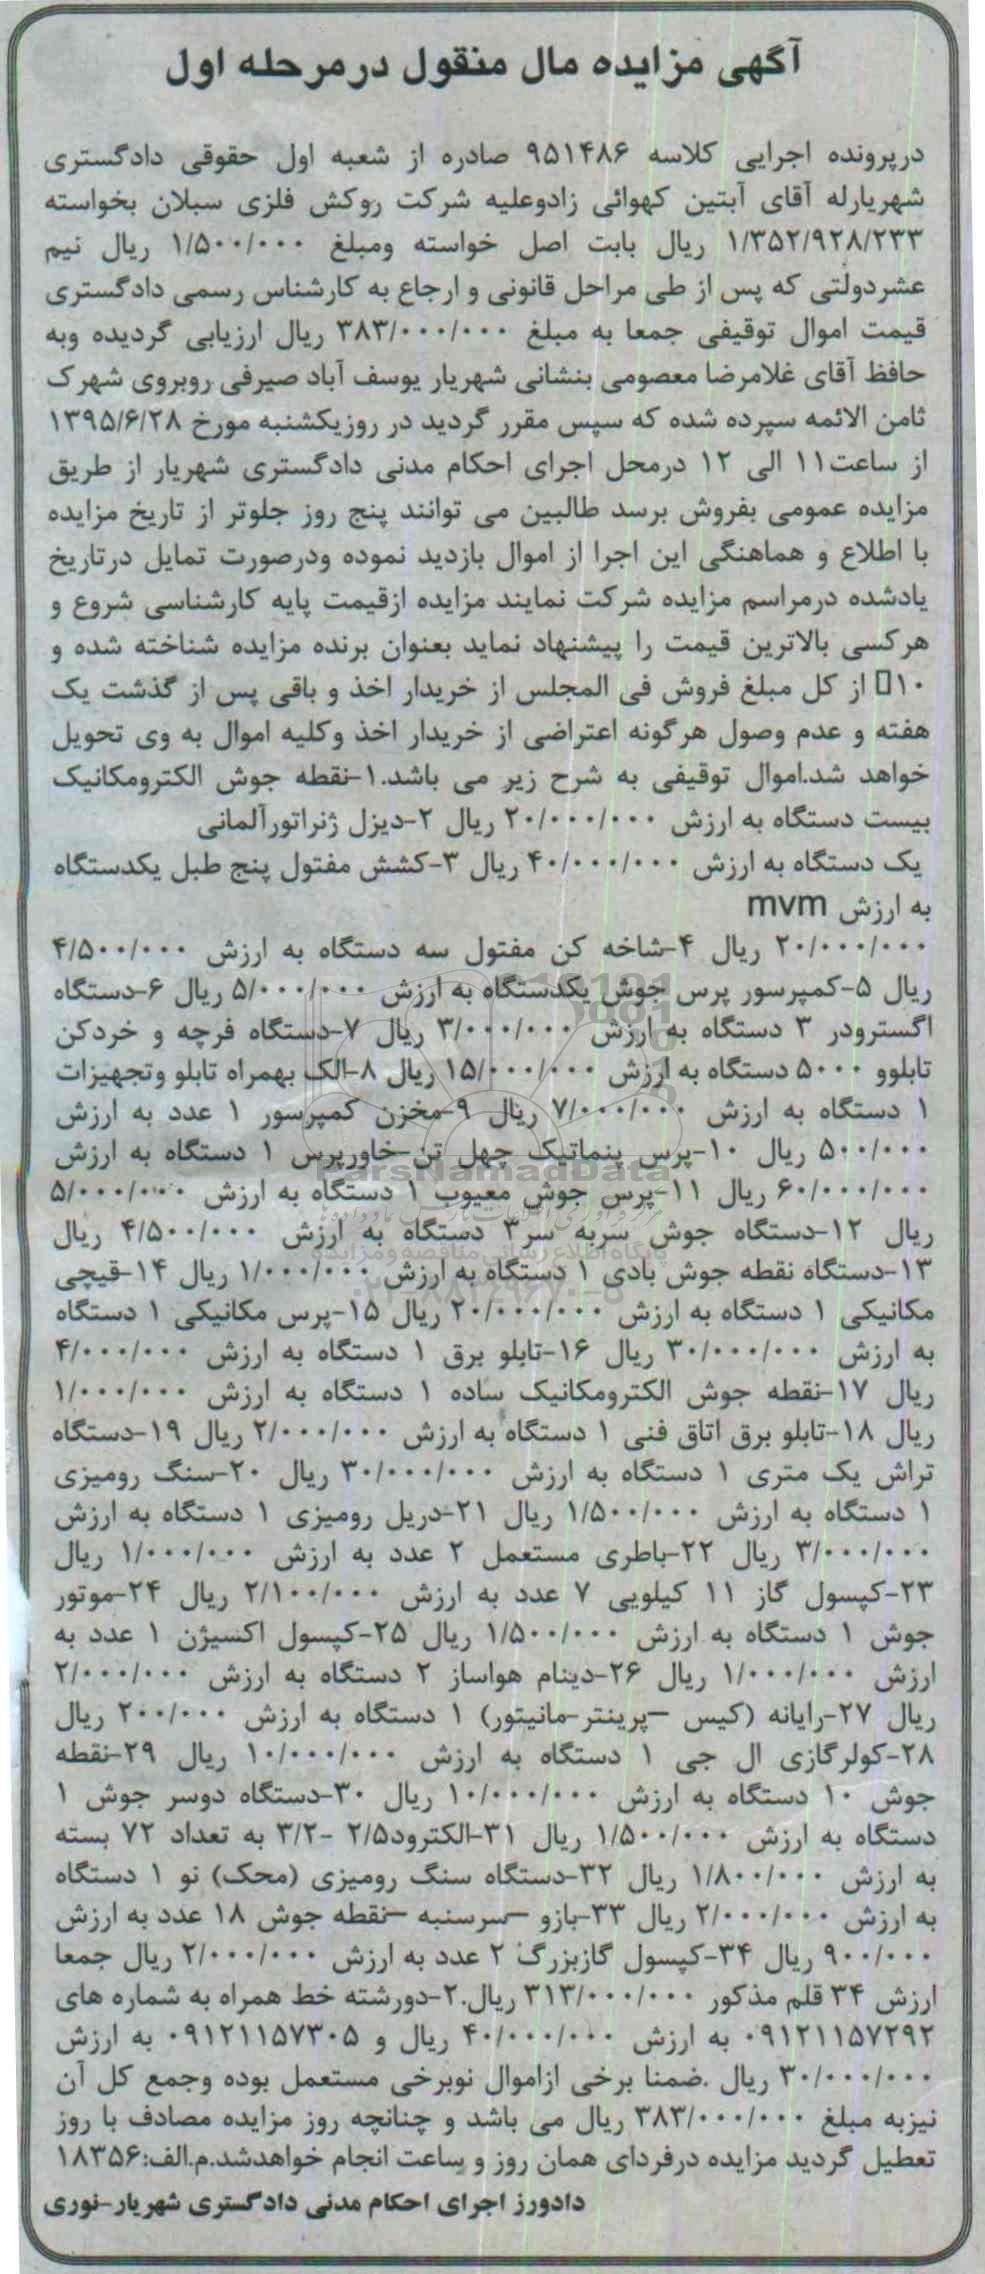 آگهی مزایده مال منقول درمرحله اول
درپرونده اجرایی کلاسه ۹۵۱۴۸۶ صادره از شعبه اول حقوقی دادگستری
شهریارله آقای آبتین کهوائی زادوعلیه شرکت روکش فلزی سبلان بخواسته
۱/۳۵۲/۹۲۸/۲۳۳ ریال بابت اصل خواسته ومبلغ ۱/۵۰۰/۰۰۰ ریال نیم
عشردولتی که پس از طی مراحل قانونی و ارجاع به کارشناس رسمی دادگستری
قیمت اموال توقیفی جمعا به مبلغ ۳۸۳/۰۰۰/۰۰۰ ریال ارزیابی گردیده وبه
حافظ آقای غلامرضا معصومی بنشانی شهریار یوسف آباد صیرفی روبروی شهرک
ثامن الائمه سپرده شده که سپس مقرر گردید در روزیکشنبه مورخ ۱۳۹۵/۶/۲۸
از ساعت۱۱ الی ۱۲ درمحل اجرای احکام مدنی دادگستری شهریار از طریق
مزایده عمومی بفروش برسد طالبین می توانند پنج روز جلوتر از تاریخ مزایده
با اطلاع و هماهنگی این اجرا از اموال بازدید نموده ودرصورت تمایل درتاریخ
یادشده درمراسم مزایده شرکت نمایند مزایده ازقیمت پایه کارشناسی شروع و
هرکسی بالاترین قیمت را پیشنهاد نماید بعنوان برنده مزایده شناخته شده و
۱۰▯ از کل مبلغ فروش فی المجلس از خریدار اخذ و باقی پس از گذشت یک
هفته و عدم وصول هرگونه اعتراضی از خریدار اخذ وکلیه اموال به وی تحویل
خواهد شد.اموال توقیفی به شرح زیر می باشد.۱-نقطه جوش الکترومکانیک
بیست دستگاه به ارزش ۲۰/۰۰۰/۰۰۰ ریال ۲-دیزل ژنراتورآلمانی
یک دستگاه به ارزش ۴۰/۰۰۰/۰۰۰ ریال ۳-کشش مفتول پنج طبل یکدستگاه
به ارزش mvm
۲۰/۰۰۰/۰۰۰ ریال ۴-شاخه کن مفتول سه دستگاه به ارزش ۴/۵۰۰/۰۰۰
ریال ۵-کمپرسور پرس جوش یکدستگاه به ارزش ۵/۰۰۰/۰۰۰ ریال ۶-دستگاه
اگسترودر ۳ دستگاه به ارزش ۳/۰۰۰/۰۰۰ ریال ۷-دستگاه فرچه و خردکن
تابلوو ۵۰۰۰ دستگاه به ارزش ۱۵/۰۰۰/۰۰۰ ریال ۸-الک بهمراه تابلو وتجهیزات
۱ دستگاه به ارزش ۷/۰۰۰/۰۰۰ ریال ۹-مخزن کمپرسور ۱ عدد به ارزش
۵۰۰/۰۰۰ ریال ۱۰-پرس پنماتیک چهل تن-خاورپرس ۱ دستگاه به ارزش
ParsNamadData
۶۰/۰۰۰/۰۰۰ ریال ۱۱-پرس جوش معیوب ۱ دستگاه به ارزش ۵/۰۰۰/۰۰۰
ریال ۱۲-دستگاه جوش سربه سر۳ دستگاه به ارزش ۴/۵۰۰/۰۰۰ ریال
پایگاه اطلاع رسانی مناقصه و مزایده
۱۳-دستگاه نقطه جوش بادی ۱ دستگاه به ارزش ۱/۰۰۰/۰۰۰ ریال ۱۴-قیچی
مکانیکی ۱ دستگاه به ارزش ۲۰/۰۰۰/۰۰۰ ریال ۱۵-پرس مکانیکی ۱ دستگاه
به ارزش ۳۰/۰۰۰/۰۰۰ ریال ۱۶-تابلو برق ۱ دستگاه به ارزش ۴/۰۰۰/۰۰۰
ریال ۱۷-نقطه جوش الکترومکانیک ساده ۱ دستگاه به ارزش ۱/۰۰۰/۰۰۰
ریال ۱۸-تابلو برق اتاق فنی ۱ دستگاه به ارزش ۲/۰۰۰/۰۰۰ ریال ۱۹-دستگاه
تراش یک متری ۱ دستگاه به ارزش ۳۰/۰۰۰/۰۰۰ ریال ۲۰-سنگ رومیزی
۱ دستگاه به ارزش ۱/۵۰۰/۰۰۰ ریال ۲۱-دریل رومیزی ۱ دستگاه به ارزش
۳/۰۰۰/۰۰۰ ریال ۲۲-باطری مستعمل ۲ عدد به ارزش ۱/۰۰۰/۰۰۰ ریال
۲۳-کپسول گاز ۱۱ کیلویی ۷ عدد به ارزش ۲/۱۰۰/۰۰۰ ریال ۲۴-موتور
جوش ۱ دستگاه به ارزش ۱/۵۰۰/۰۰۰ ریال ۲۵-کپسول اکسیژن ۱ عدد به
ارزش ۱/۰۰۰/۰۰۰ ریال ۲۶-دینام هواساز ۲ دستگاه به ارزش ۲/۰۰۰/۰۰۰
ریال ۲۷-رایانه (کیس –پرینتر-مانیتور) ۱ دستگاه به ارزش ۲۰۰/۰۰۰ ریال
۲۸-کولرگازی ال جی ۱ دستگاه به ارزش ۱۰/۰۰۰/۰۰۰ ریال ۲۹-نقطه
جوش ۱۰ دستگاه به ارزش ۱۰/۰۰۰/۰۰۰ ریال ۳۰-دستگاه دوسر جوش ۱
دستگاه به ارزش ۱/۵۰۰/۰۰۰ ریال ۳۱-الکترود۲/۵ -۳/۲ به تعداد ۷۲ بسته
به ارزش ۱/۸۰۰/۰۰۰ ریال ۳۲-دستگاه سنگ رومیزی (محک) نو ۱ دستگاه
به ارزش ۲/۰۰۰/۰۰۰ ریال ۳۳-بازو –سرسنبه –نقطه جوش ۱۸ عدد به ارزش
۹۰۰/۰۰۰ ریال ۳۴-کپسول گازبزرگ ۲ عدد به ارزش ۲/۰۰۰/۰۰۰ ریال جمعا
ارزش ۳۴ قلم مذکور ۳۱۳/۰۰۰/۰۰۰ ریال.۲-دورشته خط همراه به شماره های
۰۹۱۲۱۱۵۷۲۹۲ به ارزش ۴۰/۰۰۰/۰۰۰ ریال و ۰۹۱۲۱۱۵۷۳۰۵ به ارزش
۳۰/۰۰۰/۰۰۰ ریال .ضمنا برخی ازاموال نوبرخی مستعمل بوده وجمع کل آن
نیزبه مبلغ ۳۸۳/۰۰۰/۰۰۰ ریال می باشد و چنانچه روز مزایده مصادف با روز
تعطیل گردید مزایده درفردای همان روز و ساعت انجام خواهدشد.م.الف:۱۸۳۵۶
دادورز اجرای احکام مدنی دادگستری شهریار-نوری